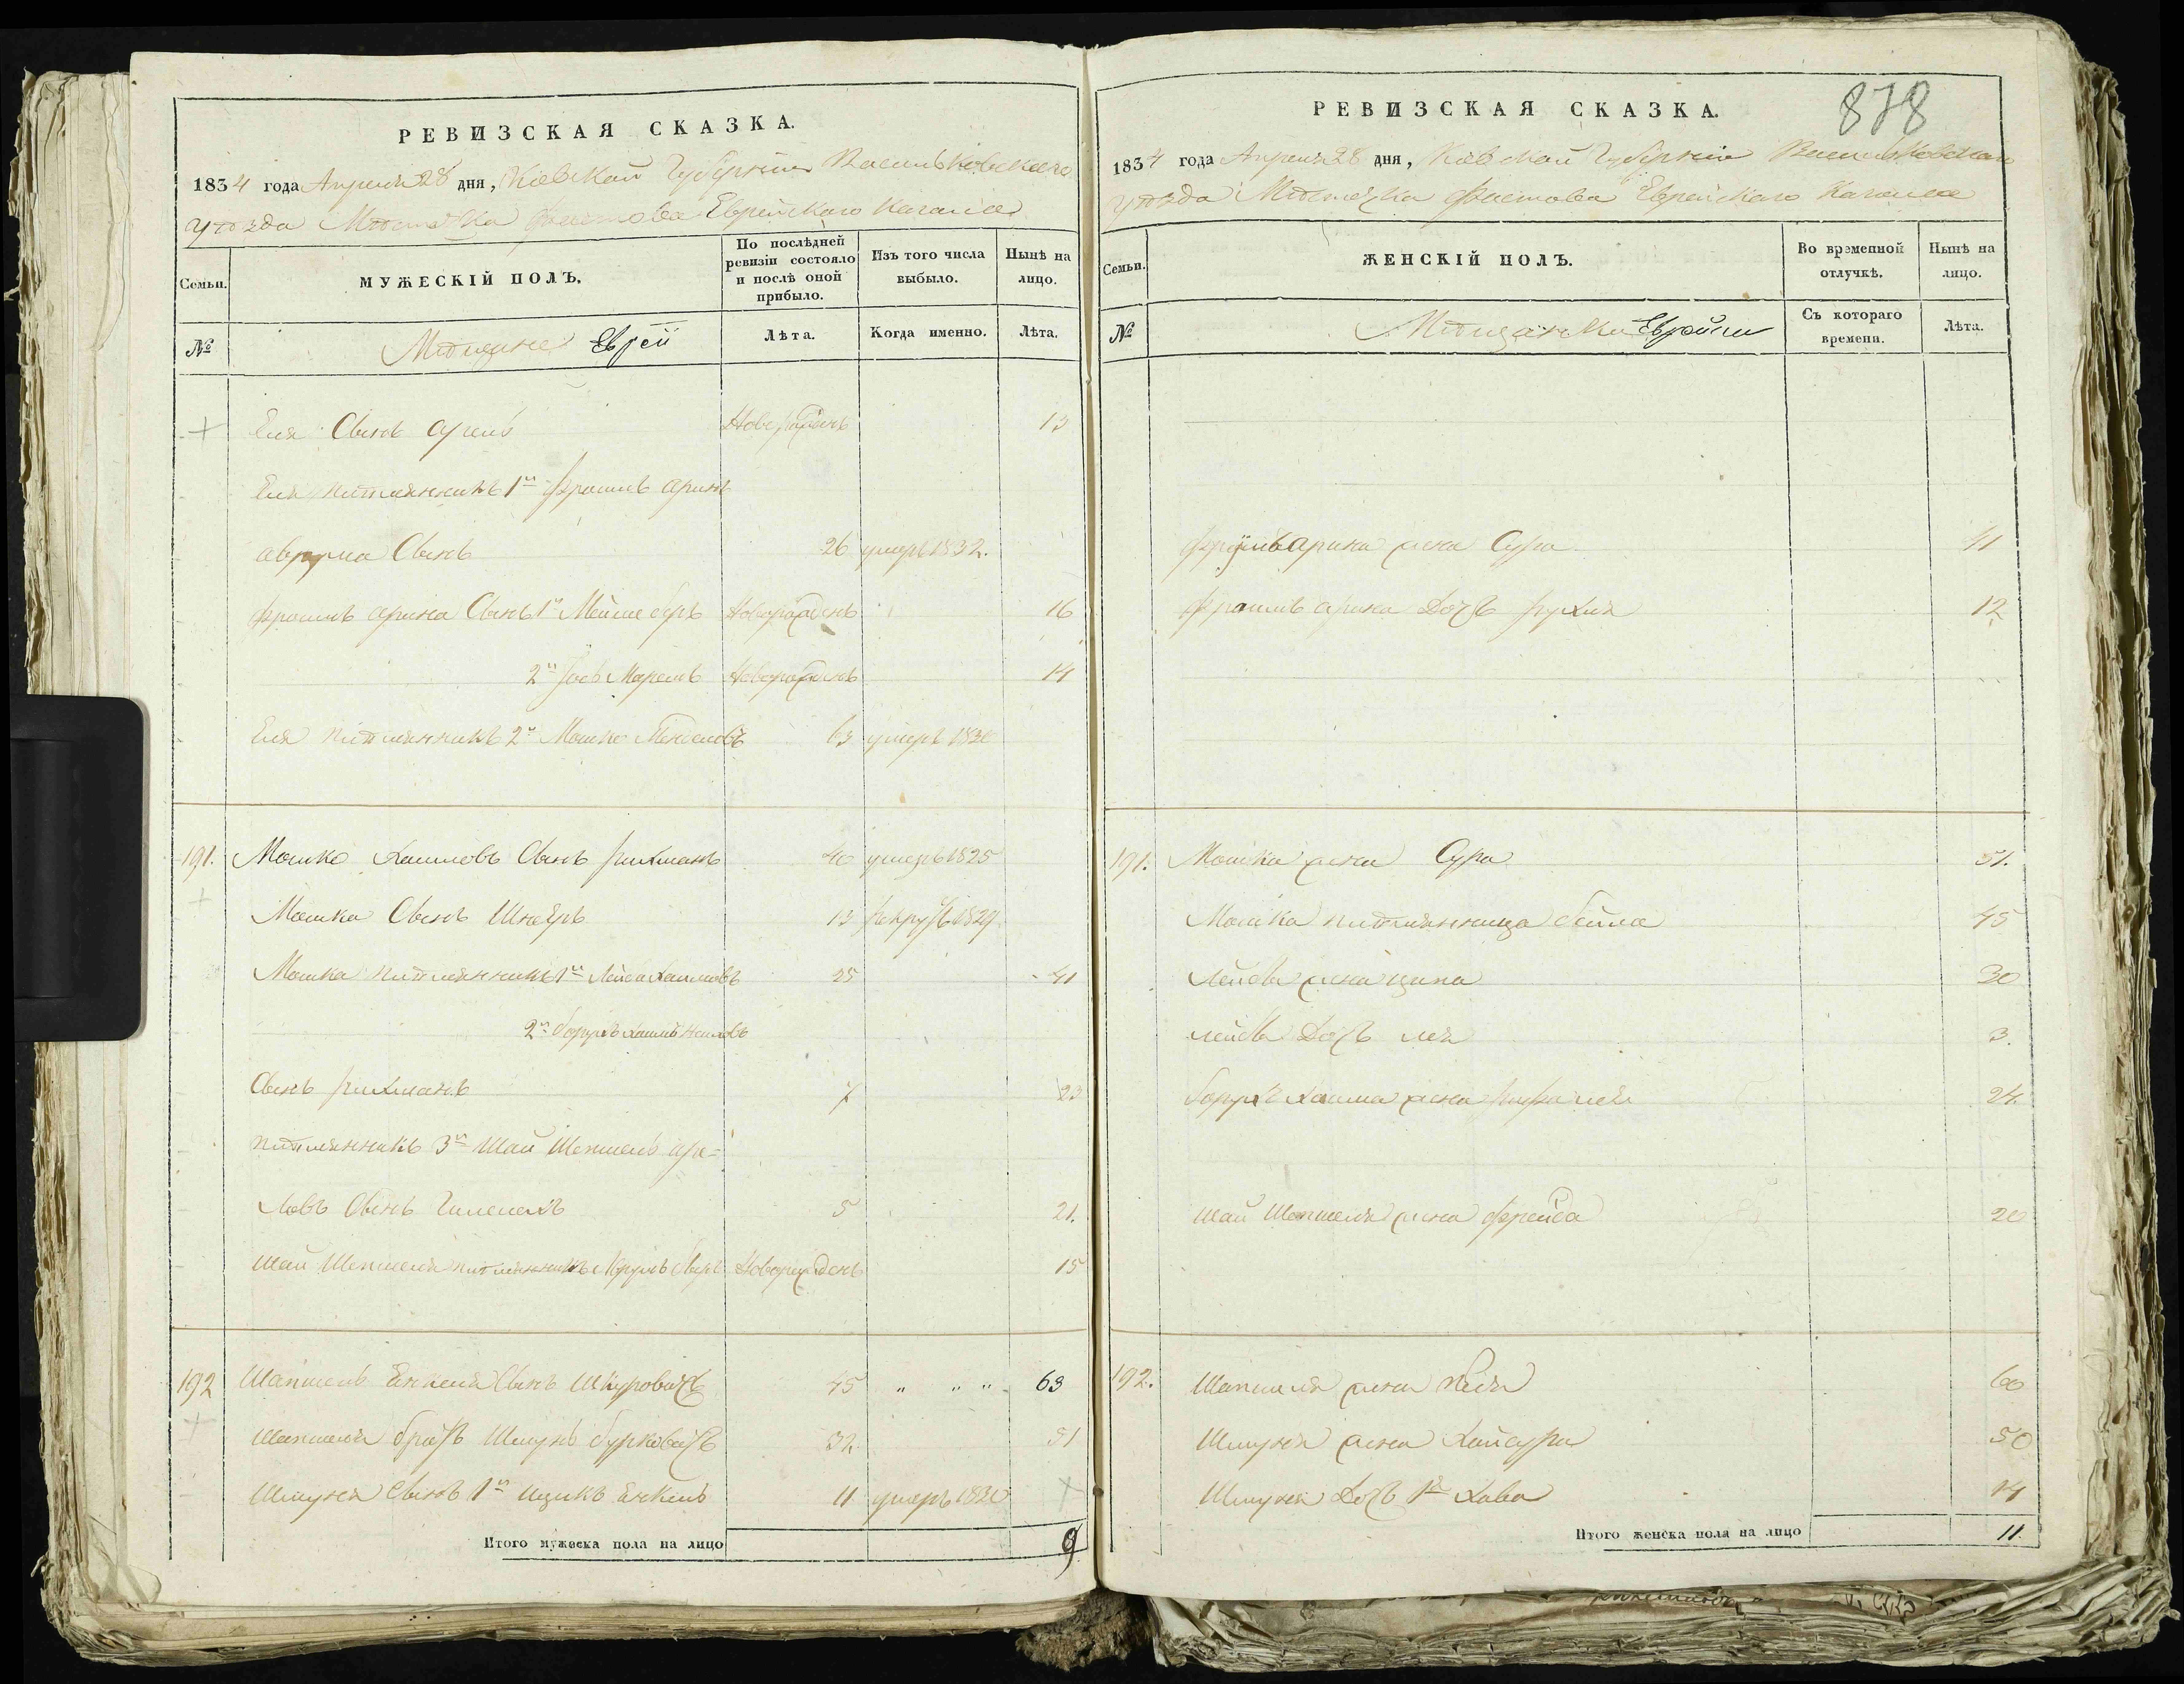 РЕВИЗСКАЯ СКАЗКА.
1834 года Апреля 28 дня, Кіевской Губерніи Васильковскаго
уѣзда Мѣстечка Фастова Еврейскаго Кагала
Семьи.
МУЖЕСКІЙ ПОЛЪ.
По послѣдней ревизіи состояло и послѣ оной прибыло.
Изъ того числа выбыло.
Нынѣ на лицо.
№
Мѣщане Евреи
Лѣта.
Когда именно.
Лѣта.
Еля Сынъ Новорожденъ 13
Еля племянникъ 1й Фроимъ Аринъ
Аврума Сынъ 26 умеръ 1832.
Фроимъ Арина Сынъ 1й Мойше Беръ Новорожденъ 16
2й Новорожденъ 14
Еля племянникъ 2й Мошко 63 умеръ 1830
191. Мошко Хаимовъ Сынъ Рихманъ 40 умеръ 1825
Мошка Сынъ Шнееръ 13 рекрутъ 1829
Мошка племянникъ 1й Лейба Хаимовъ 25 41
2й Борухъ Хаимъ
Сынъ Рихманъ 7 23
племянникъ 3й Шай Шепшель
Сынъ 5 21.
Шай Шепшеля племянникъ Новорожденъ 15
192 Шапшель Енкеля Сынъ Шкуровичъ 45 „ „ „ 63
Шапшеля братъ Шмунь Бурковичъ 32. 51
Шмуня Сынъ 1й Ицикъ Енкель 11 умеръ 1830
Итого мужеска пола на лицо 9
878
РЕВИЗСКАЯ СКАЗКА.
1834 года Апреля 28 дня, Кіевской Губерніи Васильковскаго
уѣзда Мѣстечка Фастова Еврейскаго Кагала
Семьи.
ЖЕНСКІЙ ПОЛЪ.
Во временной отлучкѣ.
Нынѣ на лицо.
№
Мѣщанки Еврейки
Съ котораго времени.
Лѣта.
Арина жена Сура 41
Фроимъ Арина Дочь Рухля 12
191. Мошка жена Сура 51.
Мошка племянница Бейла 45
Лейбы жена Ципа 30
Лейбы Дочь Лея 3.
Борухъ Хаима жена 24.
Шай Шепшеля жена Фрейда 20
192. Шапшеля жена 60
Шмуня жена Хайсура 50
Шмуня Дочь 1я Хава 14
Итого женска пола на лицо 11.